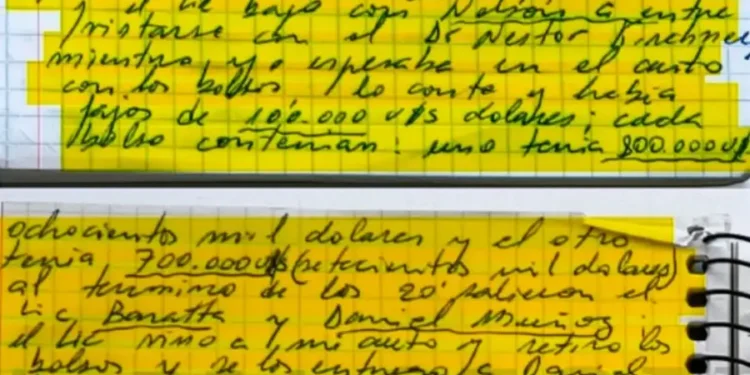 el Lic bajo con Nelson a entre
/vistarse con el Dr Nestor Kirchner
mientras yo esperaba en el auto
con los bolsos / lo conte y habia
fajos de 100.000 u$s dolares; cada
bolso contenian: uno tenia 800.000 u$
ochocientos mil dolares y el otro
tenia 700.000 u$s (setecientos mil dolares)
al termino de los 20' salieron el
Lic Baratta y Daniel Muñoz.
el Lic vino a mi auto y retiro los
bolsos y se los entrego a Daniel